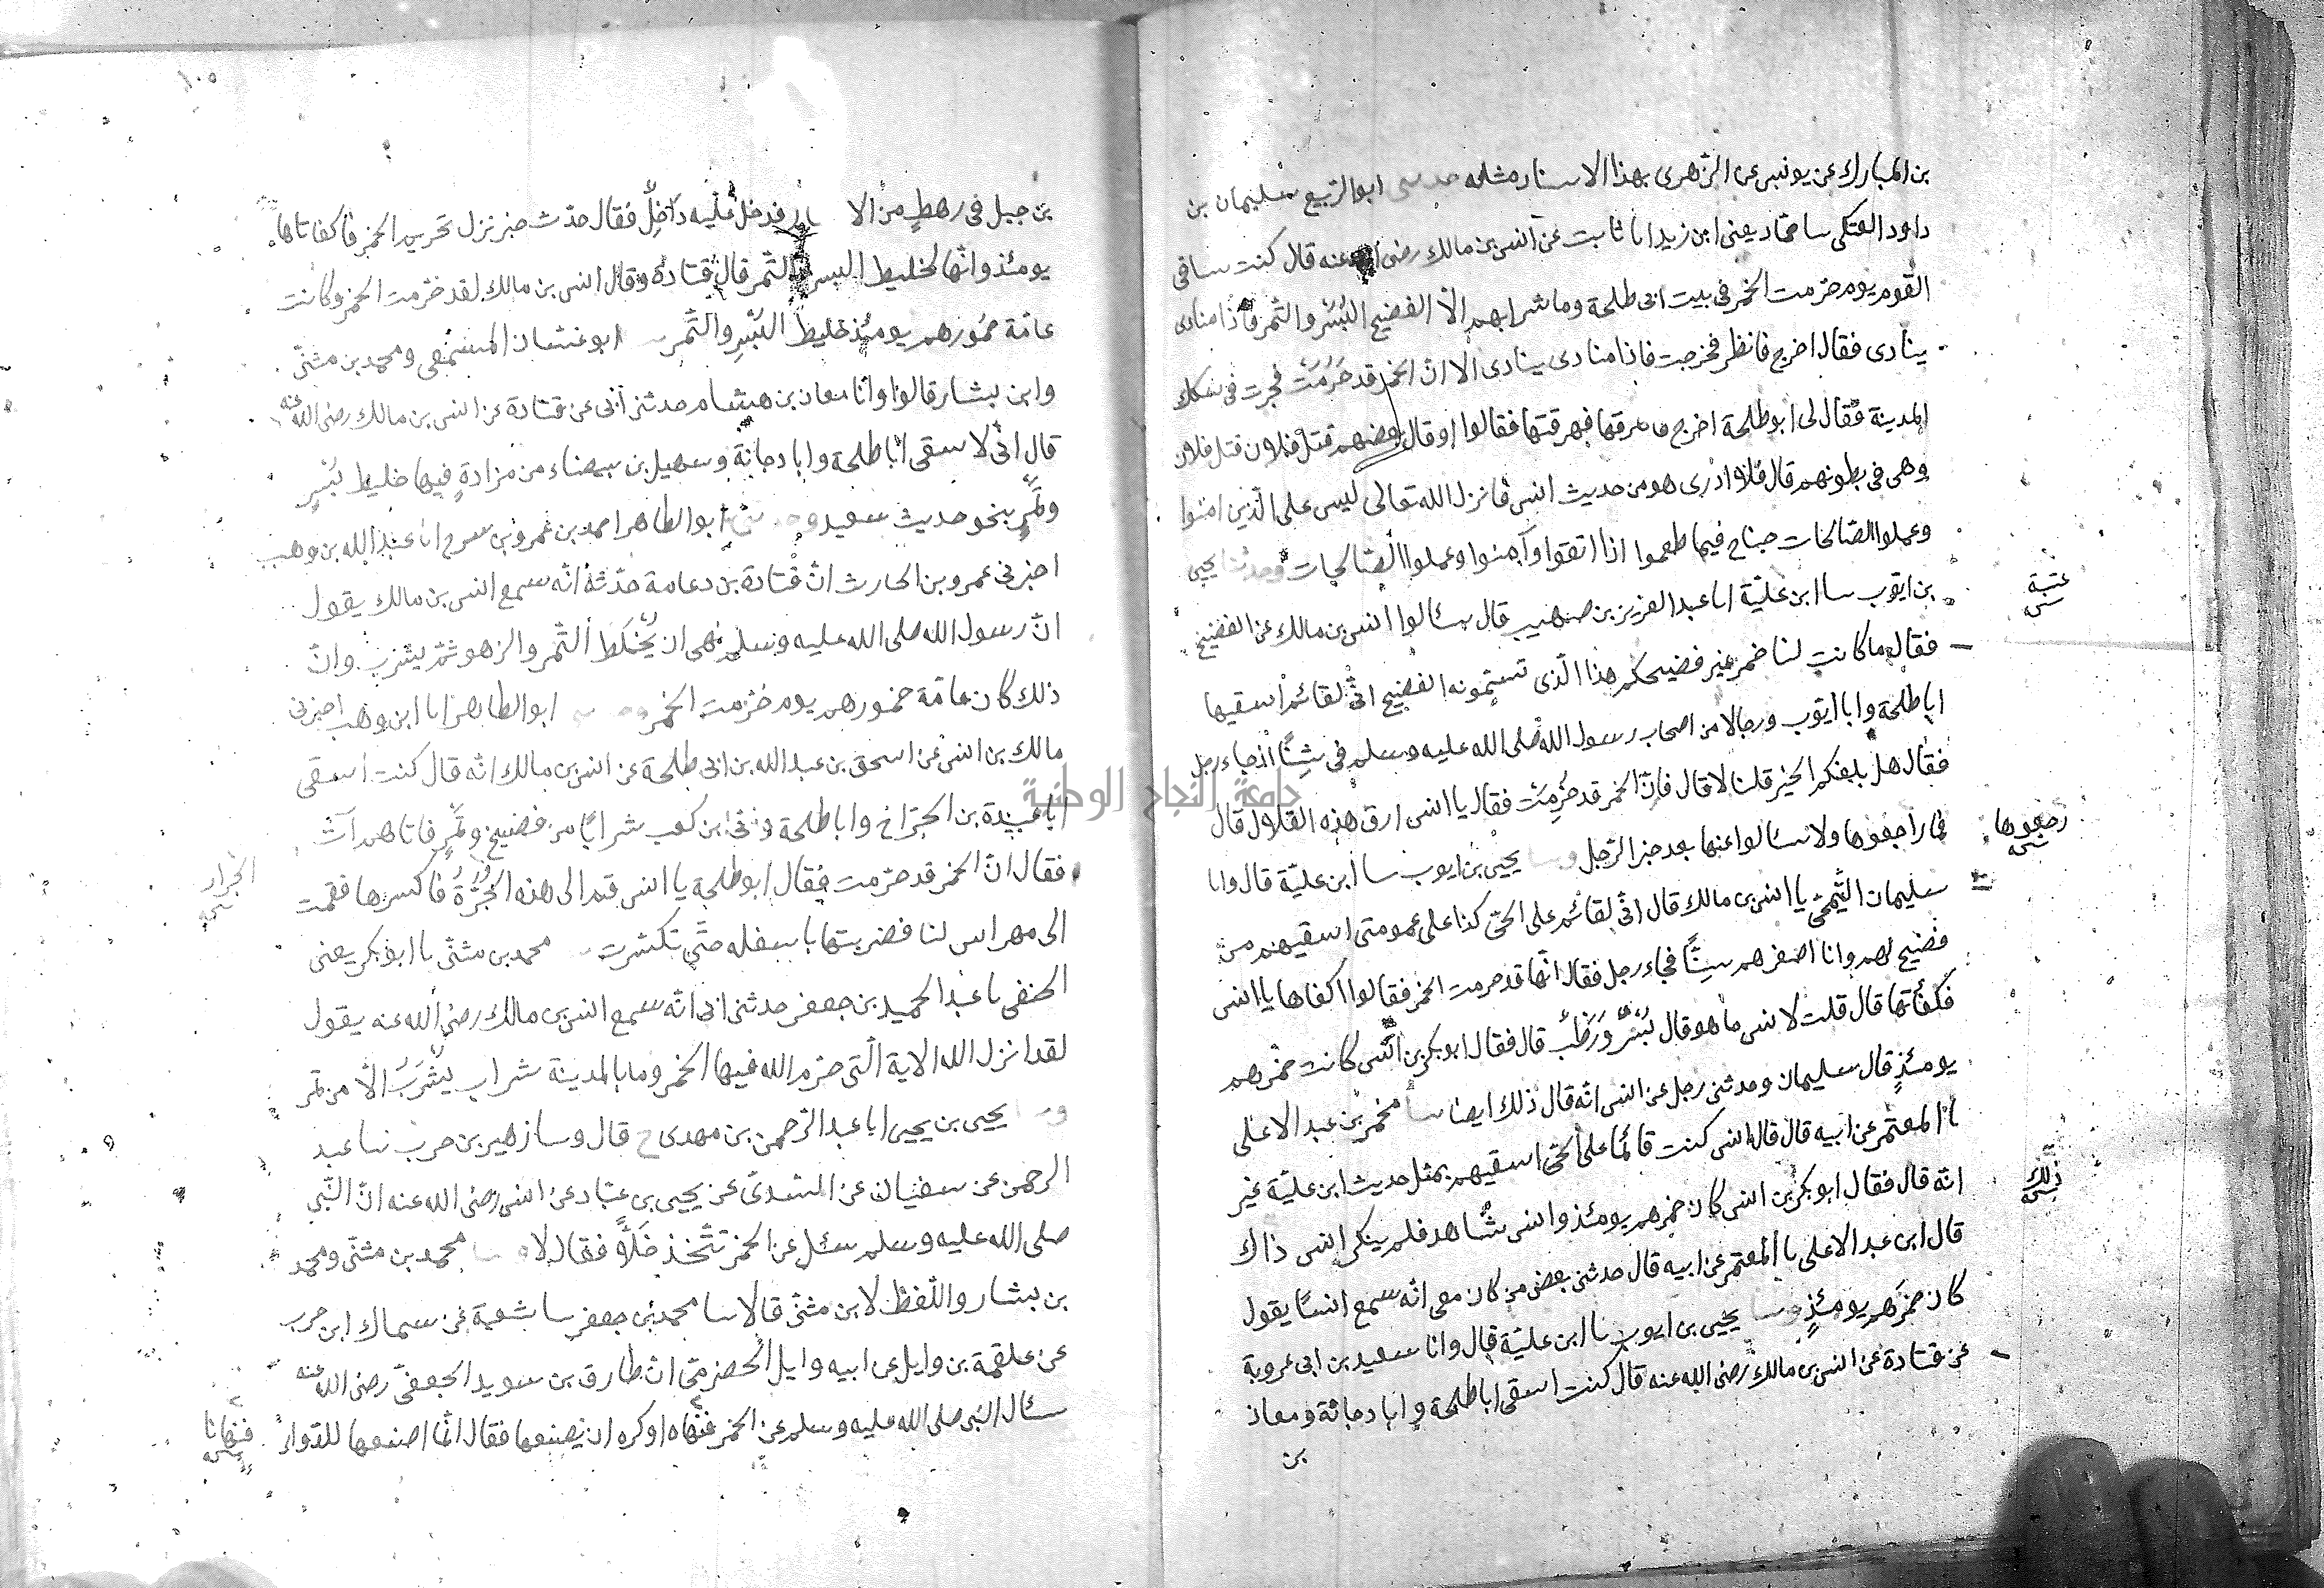 بن المبارك عن يونس عن الزهرى بهذا الاسناد مثله حدثنى ابو الربيع سليمان بن
داود العتكى سا حماد يعنى ابن زيد انا ثابت عن انس بن مالك رضى الله عنه قال كنت ساقى
القوم يوم حرمت الخمر فى بيت ابى طلحة وما شرابهم الا الفضيخ البسر والتمر فاذا منادى
ينادى فقال اخرج فانظر فخرجت فاذا منادى ينادى الا ان الخمر قد حرمت فجرت فى سكك
المدينة فقال لى ابو طلحة اخرج فاهرقها فهرقتها فقالوا او قال بعضهم قتل فلان قتل فلان
وهى فى بطونهم قال فلا ادرى هو من حديث انس فانزل الله تعالى ليس على الذين امنوا
وعملوا الصالحات جناح فيما طعموا اذا اتقوا وآمنوا وعملوا الصالحات وحدثنا يحيى
بن ايوب سا ابن علية انا عبد العزيز بن صهيب قال سئالوا انس بن مالك عن الفضيخ
فقال ما كانت لنا خمر غير فضيحكم هذا الذى تسمونه الفضيخ انى لقائم اسقيها
ابا طلحة وابا ايوب ورجالا من اصحاب رسول الله صلى الله عليه وسلم فى بيتنا اذ جاء رجل
فقال هل بلغكم الخبر قلنا لا قال فان الخمر قد حرمت فقال يا انس ارق هذه القلال قال
فما راجعوها ولا سئالوا عنها بعد خبر الرجل وسا يحيى بن ايوب سا ابن علية قال وانا
سليمان التيمى يا انس بن مالك قال انى لقائم على الحى كذا على عمومتى اسقيهم من
فضيخ لهم وانا اصغرهم سنًا فجاء رجل فقال انها قد حرمت الخمر فقالوا اكفاها يا انس
فكفأتها قال قلت لانس ما هو قال بسر ورطب قال فقال ابو بكر بن انس كانت خمرهم
يومئذ قال سليمان وحدثنى رجل عن انس انه قال ذلك ايضا سا محمد بن عبد الاعلى
نا المعتمر عن ابيه قال قال انس كنت قائما على الحى اسقيهم بمثل حديث ابن علية غير
انه قال فقال ابو بكر بن انس كان خمرهم يومئذ وانس شاهد فلم ينكر انس ذاك
قال ابن عبد الاعلى نا المعتمر عن ابيه قال حدثنى بعض من كان معى انه سمع انسًا يقول
كان خمرهم يومئذ وسا يحيى بن ايوب نا ابن علية قال وانا سعيد بن ابى عروبة
عن قتادة عن انس بن مالك رضى الله عنه قال كنت اسقى ابا طلحة وابا دجانة ومعاذ
بن
ذلك
١٠٥
بن جبل فى رهط من الا فدخل عليه داخل فقال حدث خبر نزل تحريم الخمر فاكفاناها
يومئذ وانها لخليط البسر والتمر قال قتادة وقال انس بن مالك لقد حرمت الخمر وكانت
عامة خمورهم يومئذ خليط البسر والتمر ابو غسان المسمعى ومحمد بن مثنى
وابن بشار قالوا وانا معاذ بن هشام حدثنى ابى عن قتادة عن انس بن مالك رضى الله عنه
قال انى لاسقى ابا طلحة وابا دجانة وسهيل بن بيضاء من مزادة فيها خليط بسر
وتمر بنحو حديث سعيد وحدثنى ابو الطاهر احمد بن عمرو بن سرح انا عبد الله بن وهب
اخبرنى عمرو بن الحارث ان قتادة بن دعامة حدثه انه سمع انس بن مالك يقول
ان رسول الله صلى الله عليه وسلم نهى ان يخلط التمر والزهو ثم يشرب وان
ذلك كان عامة خمورهم يوم حرمت الخمر ابو الطاهر انا ابن وهب اخبرنى
مالك بن انس عن اسحق بن عبد الله بن ابى طلحة عن انس بن مالك انه قال كنت اسقى
ابا عبيدة بن الجراح وابا طلحة وابى بن كعب شرابًا من فضيخ وتمر فاتاهم آت
فقال ان الخمر قد حرمت فقال ابو طلحة يا انس قم الى هذه الجرة فاكسرها فقمت
الجرار
الى مهراس لنا فضربتها باسفله حتى تكسرت محمد بن مثنى نا ابو بكر يعنى
الحنفى نا عبد الحميد بن جعفر حدثنى ابى انه سمع انس بن مالك رضى الله عنه يقول
لقد انزل الله الاية التى حرم الله فيها الخمر وما بالمدينة شراب يشرب الا من تمر
يحيى بن يحيى انا عبد الرحمن بن مهدى ح قال وسا زهير بن حرب سا عبد
الرحمن عن سفيان عن السدى عن يحيى بن عباد عن انس رضى الله عنه ان النبى
صلى الله عليه وسلم سئل عن الخمر تتخذ خلاً فقال لا محمد بن مثنى ومحمد
بن بشار واللفظ لابن مثنى قالا سا محمد بن جعفر سا شعبة عن سماك ابن حرب
عن علقمة بن وايل عن ابيه وايل الحضرمى ان طارق بن سويد الجعفى رضى الله عنه
سئال النبى صلى الله عليه وسلم عن الخمر فنهاه او كره ان يصنعها فقال انما اصنعها للدواء
جامعة النجاح الوطنية